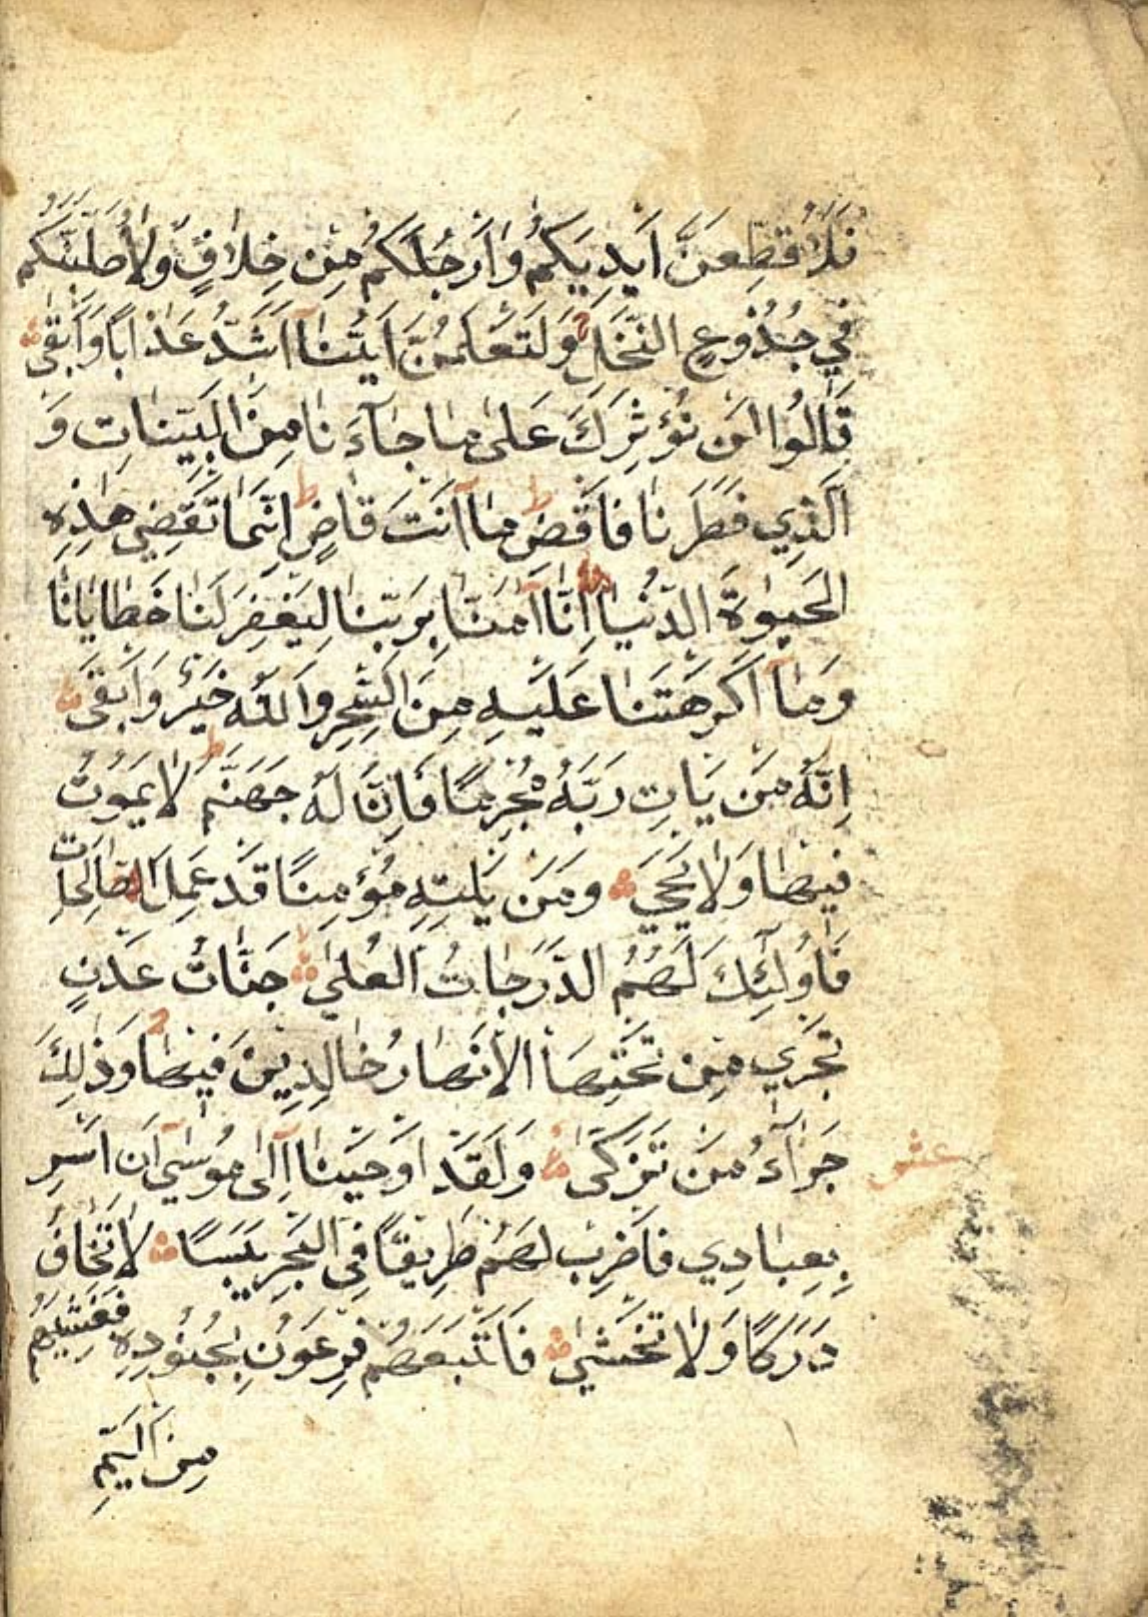 فَلَأُقَطِّعَنَّ اَيْدِيَكُمْ وَاَرْجُلَكُمْ مِنْ خِلَافٍ وَلَاُصَلِّبَنَّكُمْ
فِي جُذُوعِ النَّخْلِ وَلَتَعْلَمُنَّ اَيُّنَٓا اَشَدُّ عَذَابًا وَاَبْقٰى
قَالُوا لَنْ نُؤْثِرَكَ عَلٰى مَا جَٓاءَنَا مِنَ الْبَيِّنَاتِ وَ
الَّذِي فَطَرَنَا فَاقْضِ مَٓا اَنْتَ قَاضٍ ط اِنَّمَا تَقْضِي هٰذِهِ
الْحَيٰوةَ الدُّنْيَا اِنَّٓا اٰمَنَّا بِرَبِّنَا لِيَغْفِرَ لَنَا خَطَايَانَا
وَمَٓا اَكْرَهْتَنَا عَلَيْهِ مِنَ السِّحْرِ وَاللّٰهُ خَيْرٌ وَاَبْقٰى
اِنَّهُ مَنْ يَاْتِ رَبَّهُ مُجْرِمًا فَاِنَّ لَهُ جَهَنَّمَ ط لَا يَمُوتُ
فِيهَا وَلَا يَحْيٰى وَمَنْ يَاْتِهِ مُؤْمِنًا قَدْ عَمِلَ الصَّالِحَاتِ
فَاُولٰٓئِكَ لَهُمُ الدَّرَجَاتُ الْعُلٰى جَنَّاتُ عَدْنٍ
تَجْرِي مِنْ تَحْتِهَا الْاَنْهَارُ خَالِدِينَ فِيهَا وَذٰلِكَ
جَزَٓاءُ مَنْ تَزَكّٰى وَلَقَدْ اَوْحَيْنَٓا اِلٰى مُوسٰٓى اَنْ اَسْرِ
عشر
بِعِبَادِي فَاضْرِبْ لَهُمْ طَرِيقًا فِي الْبَحْرِ يَبَسًا لَا تَخَافُ
دَرَكًا وَلَا تَخْشٰى فَاَتْبَعَهُمْ فِرْعَوْنُ بِجُنُودِهِ فَغَشِيَهُمْ
مِنَ الْيَمِّ